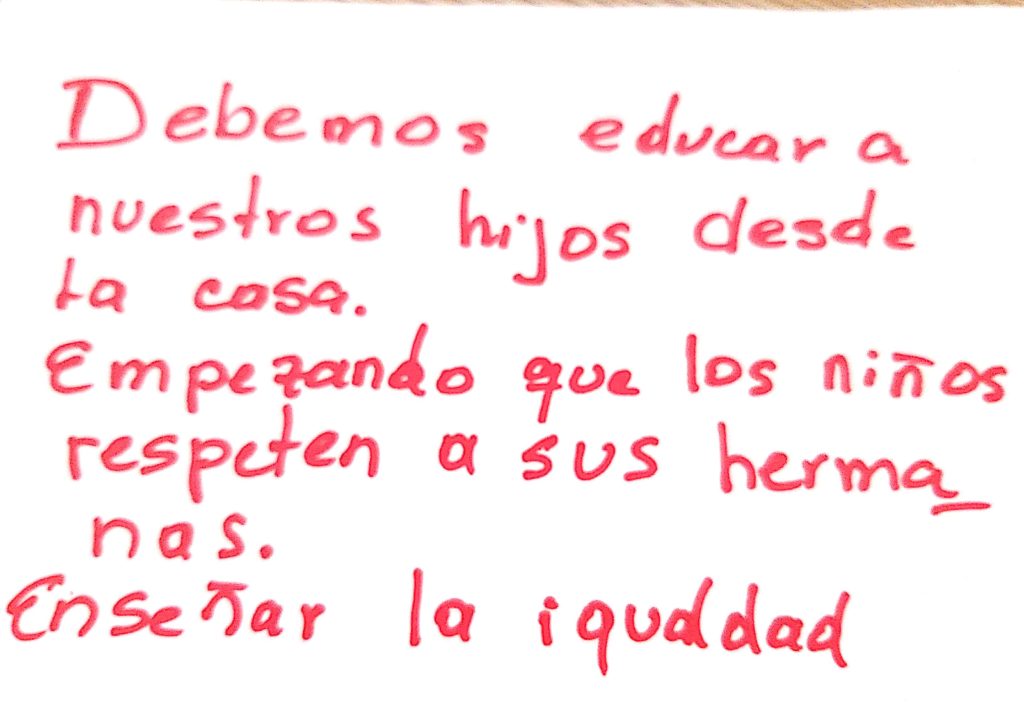 Debemos educar a
nuestros hijos desde
la casa.
Empezando que los niños
respeten a sus herma_
nas.
Enseñar la igualdad